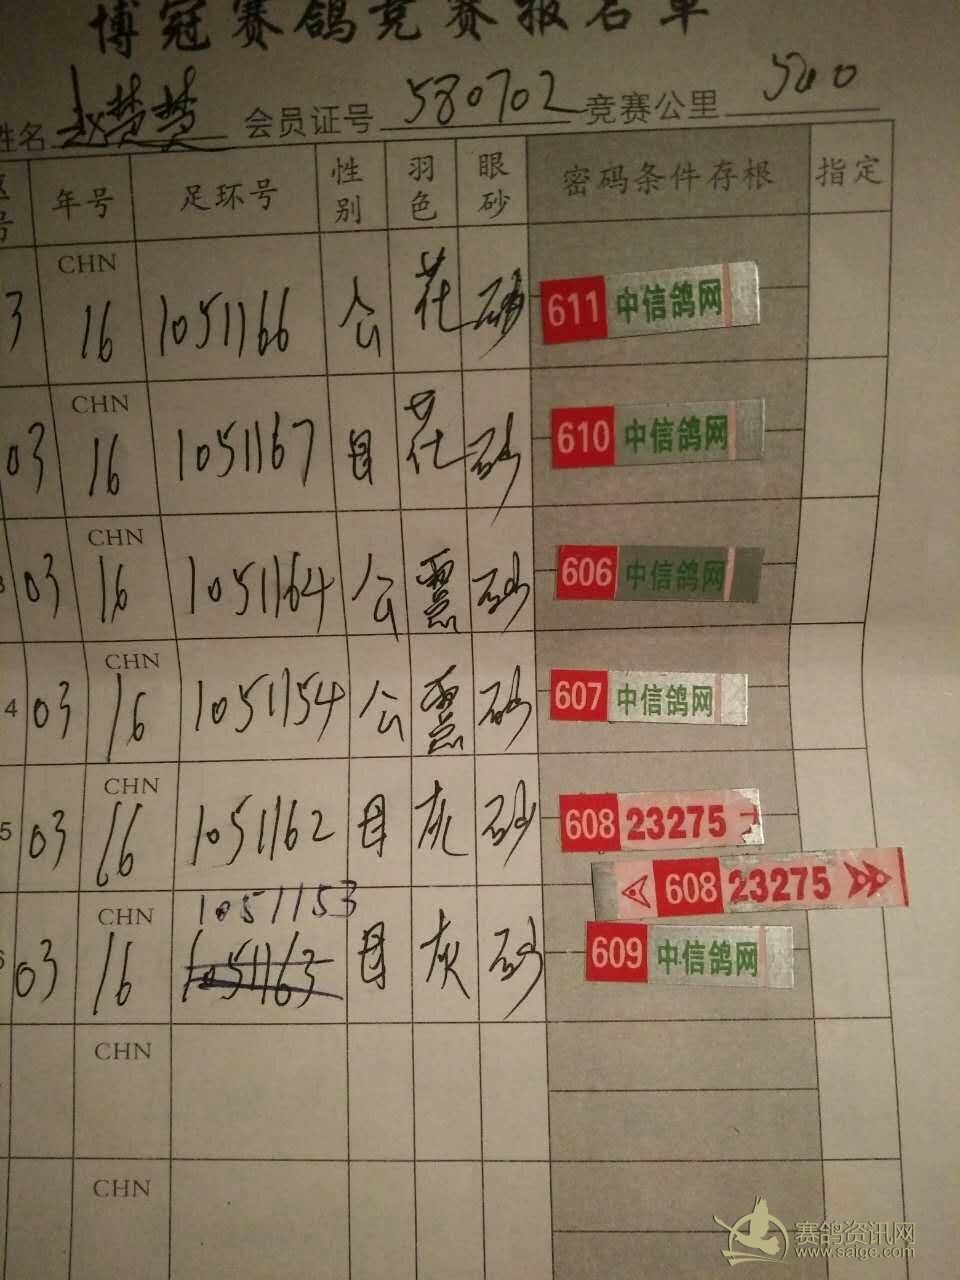 博冠赛鸽竞赛报名单
姓名 赵楚楚 会员证号 580702 竞赛公里 500
号 年号 足环号 性别 羽色 眼砂 密码条件存根 指定
3 CHN 16 1051166 公 花 砂 611 中信鸽网
03 CHN 16 1051167 母 花 砂 610 中信鸽网
3 03 CHN 16 1051164 公 砂 606 中信鸽网
4 03 CHN 16 1051154 公 砂 607 中信鸽网
5 03 CHN 16 1051162 母 灰 砂 608 23275
608 23275
03 CHN 16 1051153 1051163 母 灰 砂 609 中信鸽网
CHN
CHN
赛鸽资讯网
www.saige.com